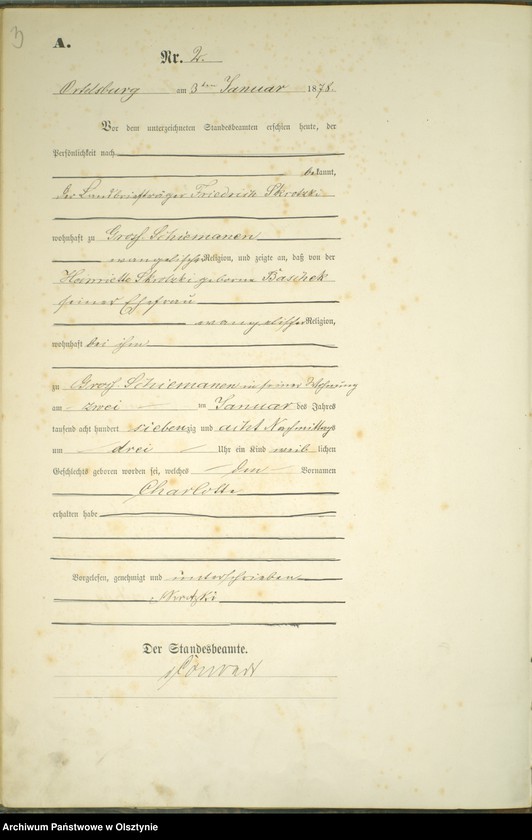 3
A.
Nr. 2.
Ortelsburg am 3ten Januar 1878.
Vor dem unterzeichneten Standesbeamten erschien heute, der
Persönlichkeit nach
bekannt,
der Landbriefträger Friedrich
wohnhaft zu Groß Schiemanen
evangelischer Religion, und zeigte an, daß von der
Henriette geborne Baschek
seiner Ehefrau
evangelischer Religion,
wohnhaft bei ihm
zu Groß Schiemanen in seiner Wohnung
am zwei ten Januar des Jahres
tausend acht hundert siebenzig und acht Nachmittags
um drei Uhr ein Kind weib lichen
Geschlechts geboren worden sei, welches den Vornamen
Charlotte
erhalten habe
Vorgelesen, genehmigt und unterschrieben
Der Standesbeamte.
Archiwum Państwowe w Olsztynie